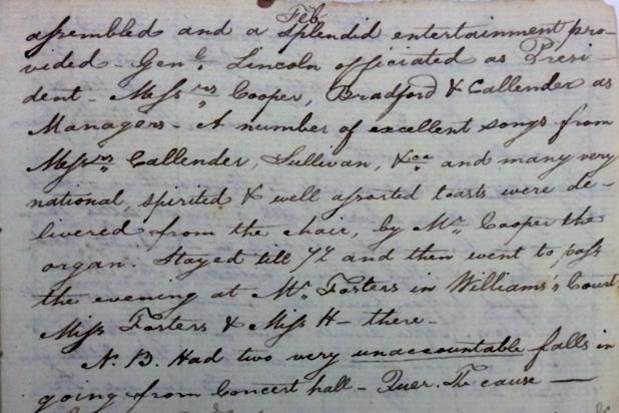 Feb
assembled and a splendid entertainment pro-
vided - Genl. Lincoln officiated as Presi-
dent - Messrs Cooper, Bradford & Callender as
Managers - A number of excellent songs from
Messrs Callender, Sullivan, &ca and many very
national, spirited & well assorted toasts were de-
livered from the chair, by Mr. Cooper the
organ. Stayed till 7½ and then went to pass
the evening at Mr. Fosters in Williams's Court
Miss Fosters & Miss H- there -
N. B. Had two very unaccountable falls in
going from Concert hall - Quer. The cause —